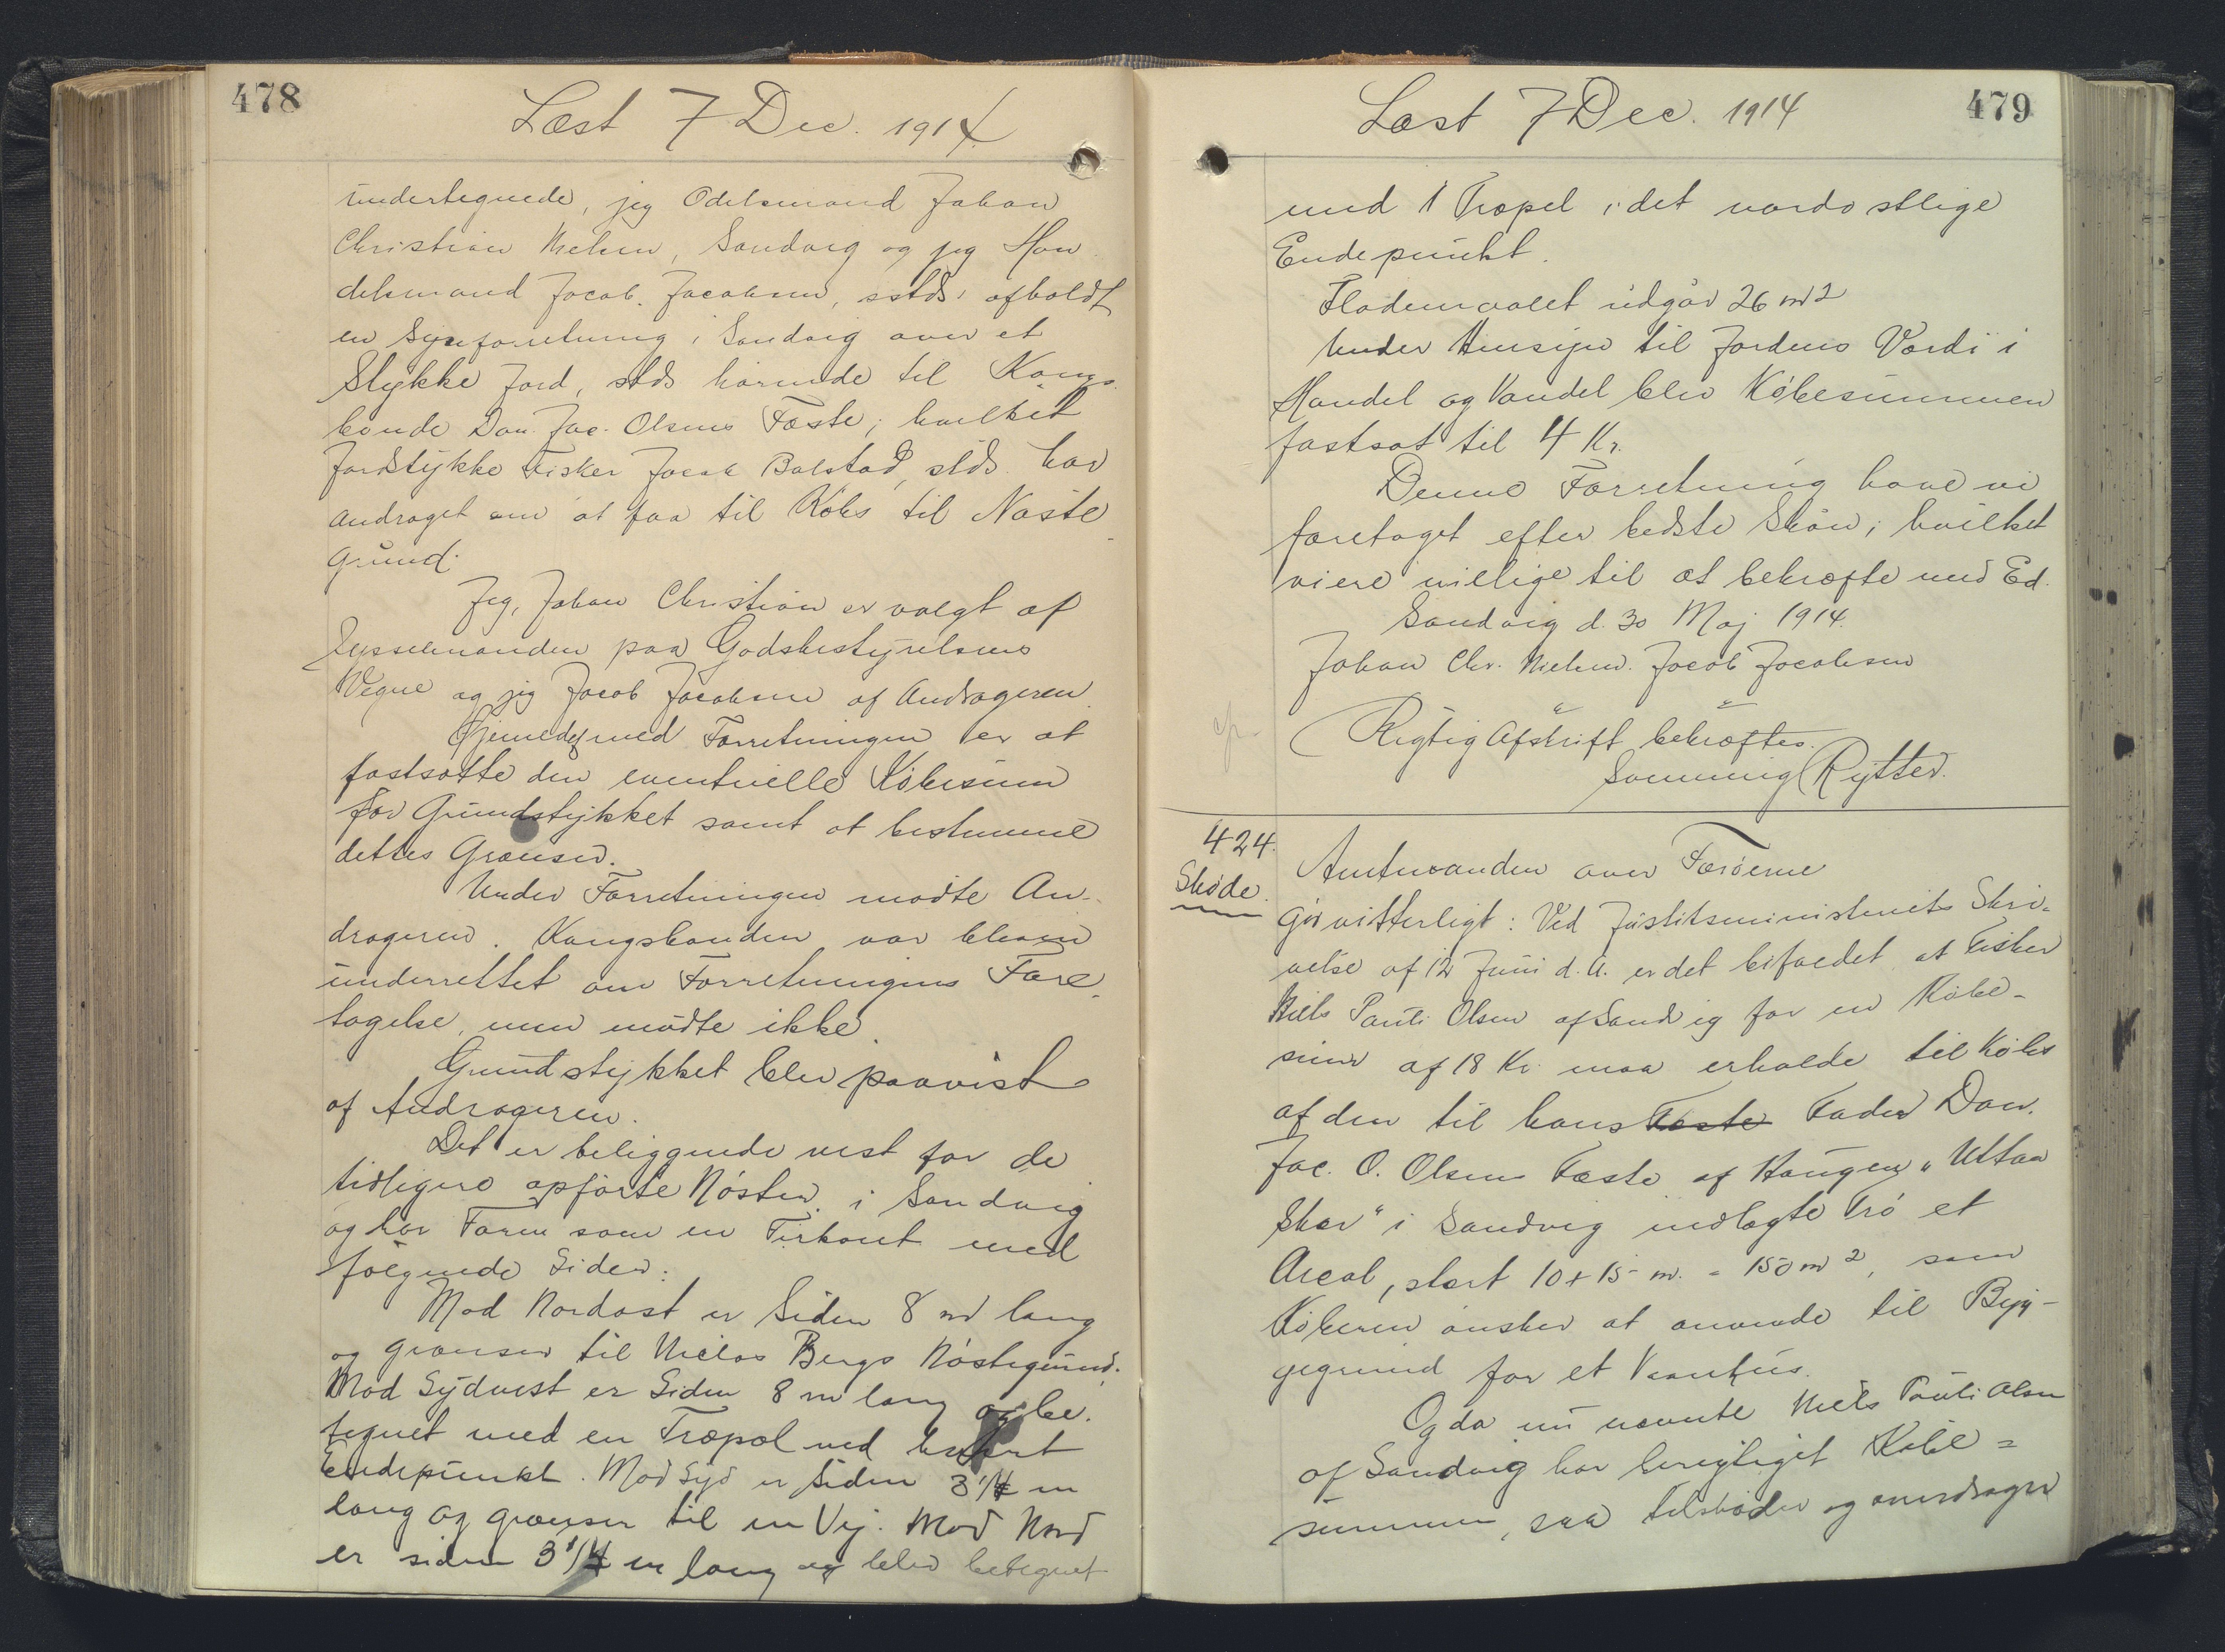 478
Læst 7 Dec. 1914.
undertegnede, jeg Odelsmand Johan
Christian Nielsen, Sandvig og jeg Han-
delsmand Jacob Jacobsen, sstds. afholdt
en Synsforretning i Sandvig over et
Stykke Jord, stds hørende til Kongs-
bonde Dan. Jac. Olsens Fæste; hvilket
Jordstykke Fisker Jocab Bolstad, stds. har
andraget om at faa til Købs til Nøste-
grund.
Jeg, Johan Christian er valgt af
Sysselmanden paa Godsbestyrelsens
Vegne og jeg Jacob Jacobsen af Andrageren.
Øjemedet med Forretningen er at
fastsætte den eventuelle Købesum
for Grundstykket samt at bestemme
dettes Grænser.
Under Forretningen mødte An-
drageren. Kongsbonden var bleven
underrettet om Forretningens Fore-
tagelse, men mødte ikke.
Grundstykket blev paavist
af Andrageren.
Det er beliggende vest for de
tidligere opførte Nøster i Sandvig
og har Form som en Firkant med
følgende Sider:
Mod Nordøst er Siden 8 m lang
og grænser til Niclas Bergs Nøstegrund.
Mod Sydvest er Siden 8 m lang og be-
tegnet med en Træpæl ved hvert
Endepunkt. Mod Syd er Siden 3 1/4 m
lang og grænser til en Vej. Mod Nord
er siden 3 1/4 m lang og blev betegnet
Læst 7 Dec. 1914
479
med 1 Træpel i det nordøstlige
Endepunkt.
Flademaalet udgør 26 m2
Under Hensyn til Jordens Værdi i
Handel og Vandel blev Købesummen
fastsat til 4 Kr.
Denne Forretning have vi
foretaget efter bedste Skøn; hvilket
vi ere villige til at bekræfte med Ed.
Sandvig d. 30 Maj 1914.
Johan Chr. Nielsen. Jacob Jacobsen
Rigtig Afskrift bekræftes.
Samuelsen Rytter.
424.
Skøde.
Amtmanden over Færøerne
Gør vitterligt: Ved Justitsministeriets Skri-
velse af 12 Juni d. A. er det bifaldet at Fisker
Niels Pauli Olsen af Sandvig for en Købe-
sum af 18 Kr. maa erholde til Købs
af den til hans Fæste Fader Dan.
Jac. O. Olsens Fæste af Haugen „Uttan
Skar“ i Sandvig indlagte Trø et
Areal, stort 10 + 15 m. = 150 m2, som
Køberen ønsker at anvende til Byg-
gegrund for et Vaanhus.
Og da nu nævnte Niels Pauli Olsen
af Sandvig har berigtiget Købe=
summen, saa tilskøder og overdrager